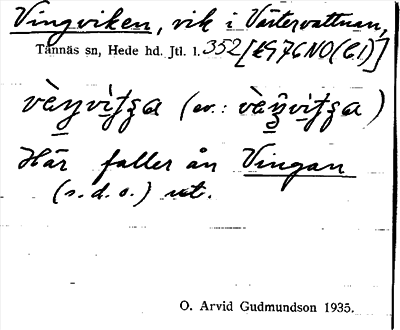 Vingviken, vik i Västervattnan,
Tännäs sn, Hede hd. Jtl. l. 352 [17G7CNO(C.1)]
(ev.: )
Här faller ån Vingan
(s.d.o.) ut.
O. Arvid Gudmundson 1935.